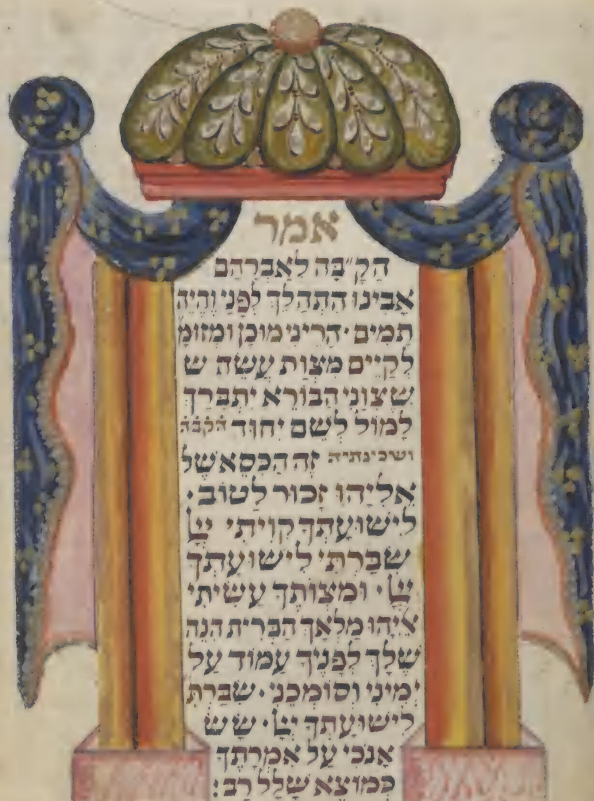 אמר
הק״בה לאברהם
אבינו התהלך לפני והיה
תמים · הריני מוכן ומזומ
לקיים מצות עשה ש
שצוני הבורא יתברך
למול לשם יחוד הקבה
ושכינתיה זה הכסא של
אליהו זכור לטוב ·
לישועתך קויתי יי
שברתי לישועתך
יי · ומצותך עשיתי
אליהו מלאך הברית הנה
שלך לפניך עמוד על
ימיני וסומכני · שברתי
לישועתך יי · שש
אנכי על אמרתך
כמוצא שלל רב :